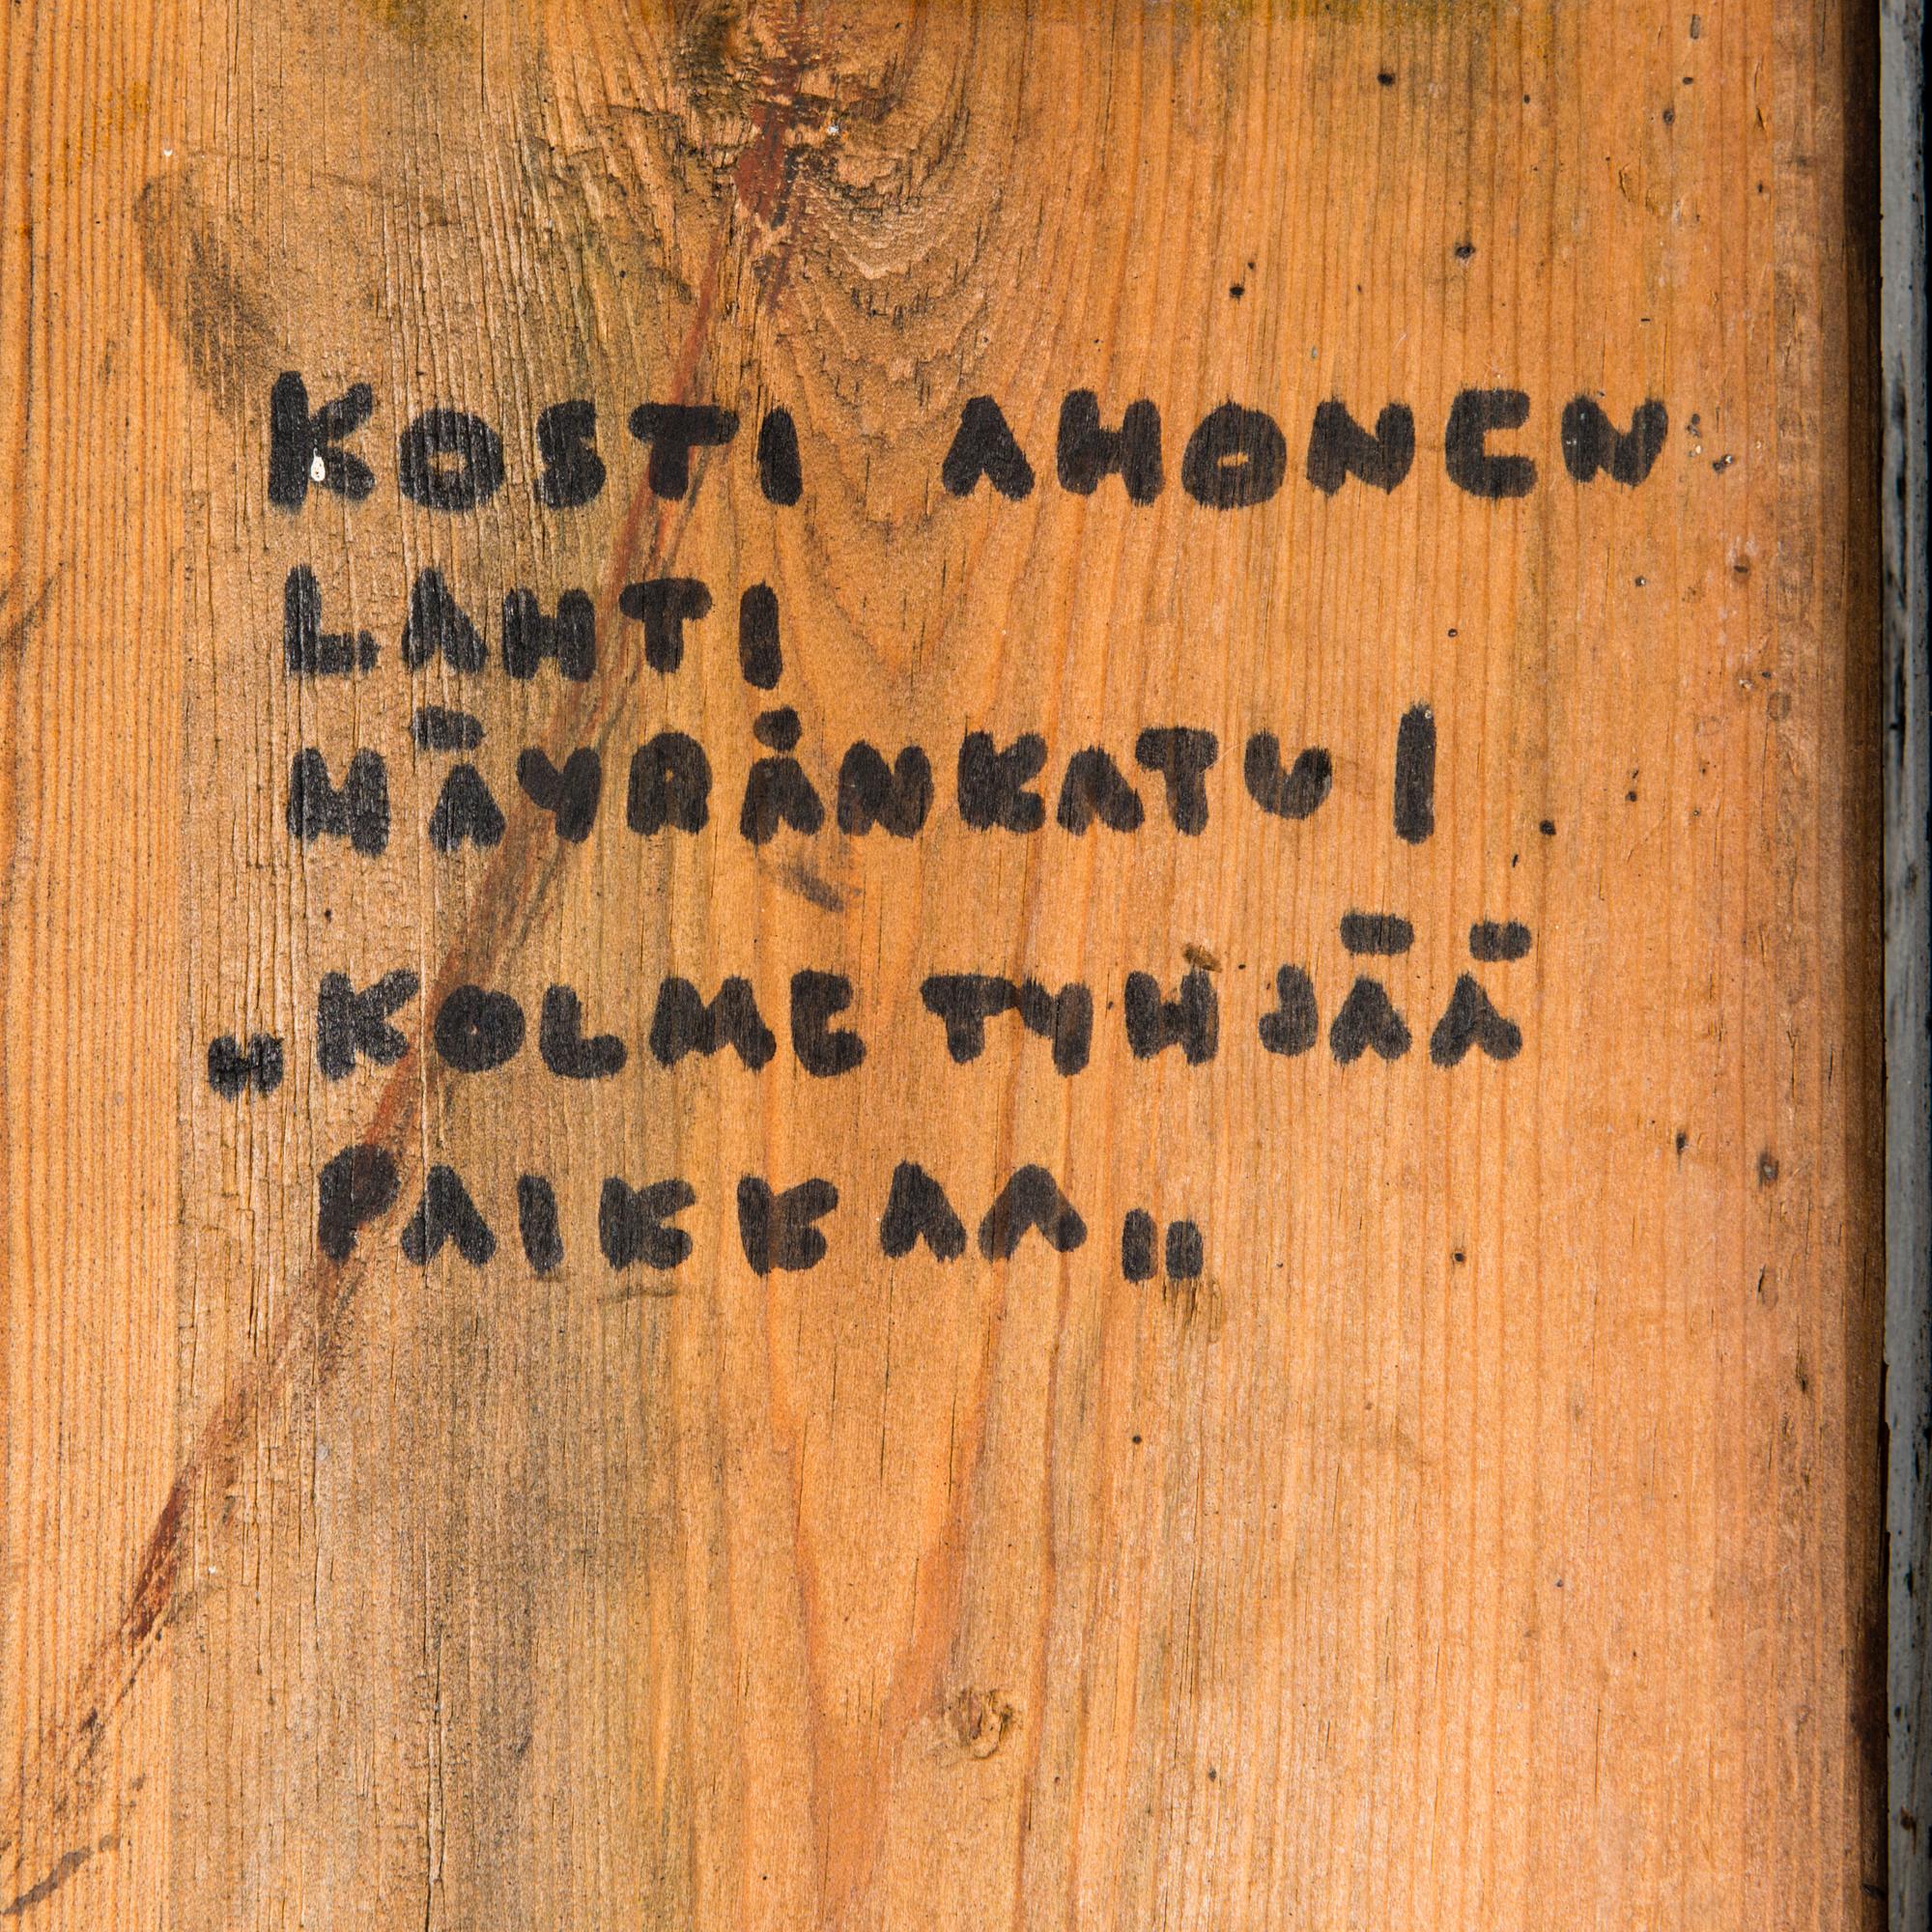 KOSTI AHONEN
LAHTI
MÄYRÄNKATU 1
„KOLME TYHJÄÄ
PAIKKAA"